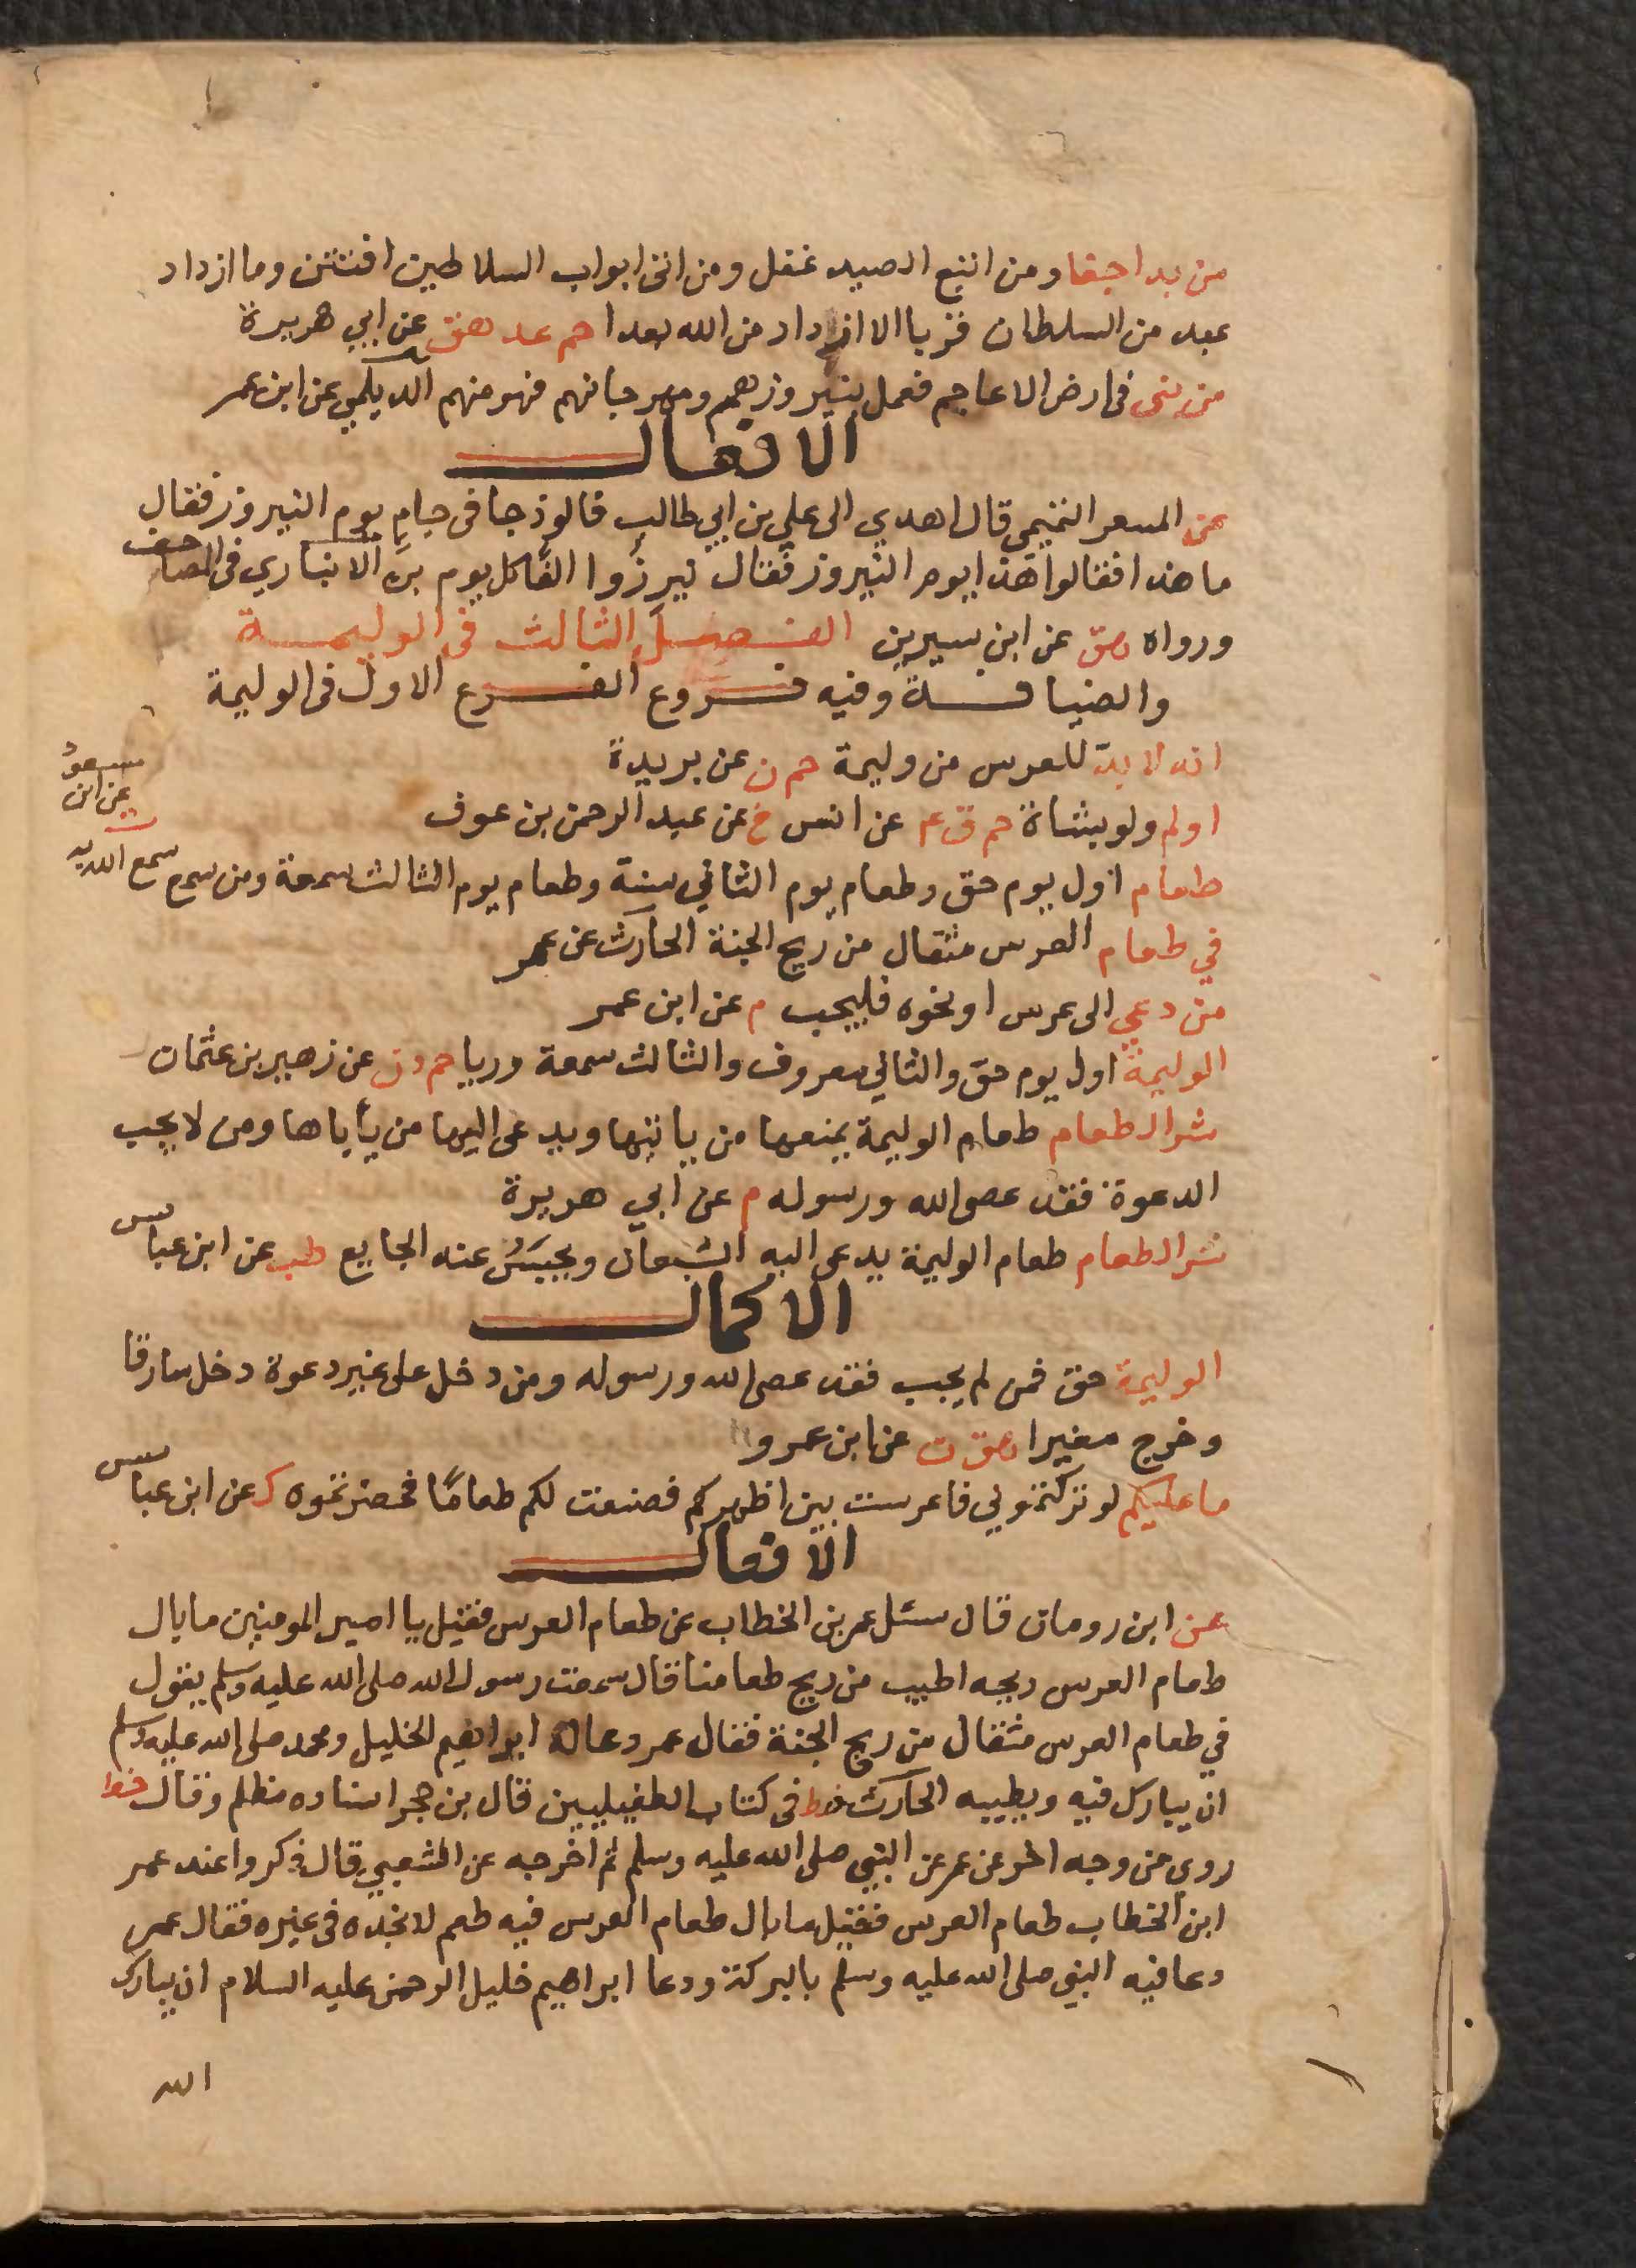 من بدا جفا ومن اتبع الصيد غفل ومن اتى ابواب السلاطين افتتن وما ازداد
عبد من السلطان قربا الا ازداد من الله بعدا حم عد هق عن ابي هريرة
من بنى فى ارض الاعاجم فعمل بنيروزهم ومهرجانهم فهو منهم الديلمي عن ابن عمر
الافعال
عن المسعر التميمى قال اهدي الى علي بن ابي طالب فالوذجا فى جام يوم النيروز فقال
ما هذا فقالوا هذا يوم النيروز فقال نيرزُوا الفّا كل يوم بن الانباري فى المصاحف
ورواه هق عن ابن سيرين الفصل الثالث فى الوليمة
والضيافة وفيه فروع الفرع الاول فى الوليمة
انه لا بدّ للعرس من وليمة حم ن عن بريدة
اولم ولو بشاة حم ق ع عن انس خ عن عبد الرحمن بن عوف
طعام اول يوم حق وطعام يوم الثاني سنة وطعام يوم الثالث سمعة ومن سمع سمع الله به
ت عن ابن
مسعود
في طعام العرس مثقال من ريح الجنة الحارث عن عمر
من دعي الى عرس او نحوه فليجب م عن ابن عمر
الوليمة اول يوم حق والثاني معروف والثالث سمعة وريا حم د ن عن زهير بن عثمان
شر الطعام طعام الوليمة يمنعها من ياتيها ويدعى اليها من يأباها ومن لا يجب
الدعوة فقد عصى الله ورسوله م عن ابي هريرة
شر الطعام طعام الوليمة يدعى اليه الشبعان ويحبسُ عنه الجايع طب عن ابن عباس
الاكمال
الوليمة حق فمن لم يجب فقد عصى الله ورسوله ومن دخل على غير دعوة دخل سارقا
وخرج مغيرا هق ت عن ابن عمرو
ما عليكم لو تركتموني فاعرست بين اظهركم فصنعت لكم طعامًا فحضرتموه ك عن ابن عباس
الافعال
عن ابن رومان قال سئل عمر بن الخطاب عن طعام العرس فقيل يا امير المومنين ما بال
طعام العرس ريحه اطيب من ريح طعامنا قال سمعت رسول الله صلى الله عليه وسلم يقول
في طعام العرس مثقال من ريح الجنة فقال عمر دعا له ابراهيم الخليل ومحمد صلى الله عليه وسلم
ان يبارك فيه ويطيبه الحارث خط فى كتاب الطفيليين قال بن حجر اسناده مظلم وقال خط
روى من وجه اخر عن عمر عن النبي صلى الله عليه وسلم ثم اخرجه عن الشعبي قال ذكروا عند عمر
ابن الخطاب طعام العرس فقيل ما بال طعام العرس فيه طعم لا نجده فى غيره فقال عمر
دعا فيه النبي صلى الله عليه وسلم بالبركة ودعا ابراهيم خليل الرحمن عليه السلام ان يبارك
الله